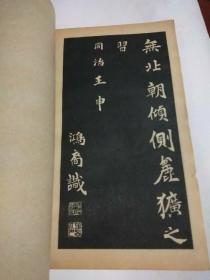 無北朝傾側麄獷之
習
同治壬申
鴻裔識